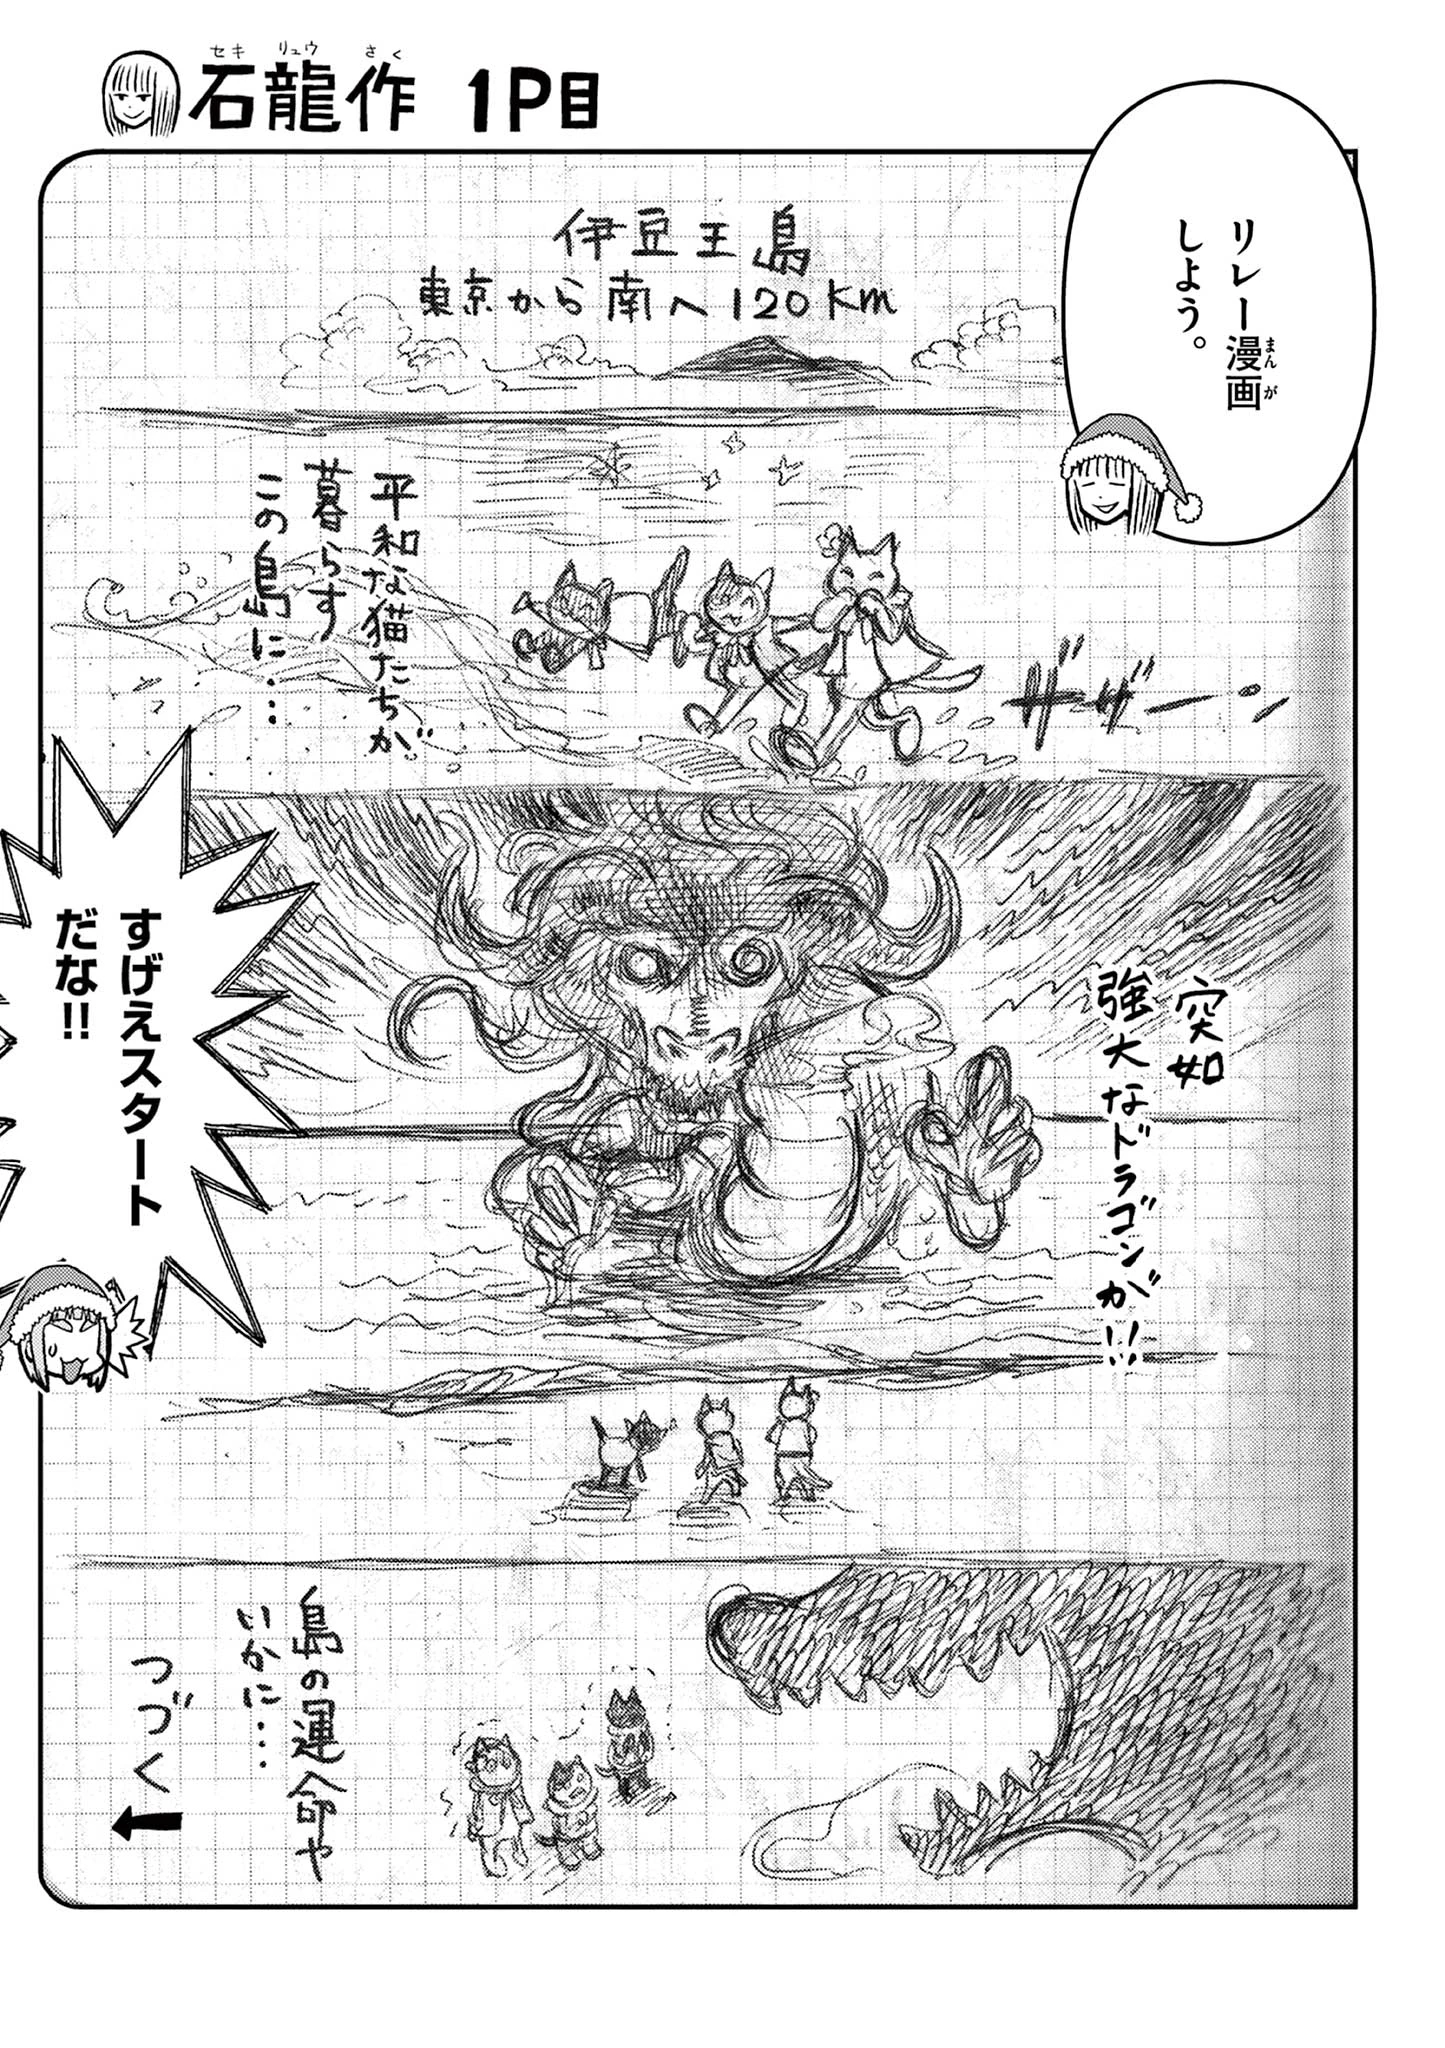 セキ リュウ さく
石龍作 1P目
リレー漫画
まんが
しよう。
伊豆王島
東京から南へ120Km
平和な猫たちが
暮らす
この島に…
ザザーン
突如
強大なドラゴンが!!
すげえスタート
だな!!
島の運命や
いかに…
つづく